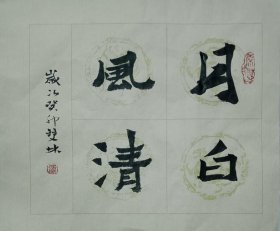 月白
風清
歲次癸卯雙林